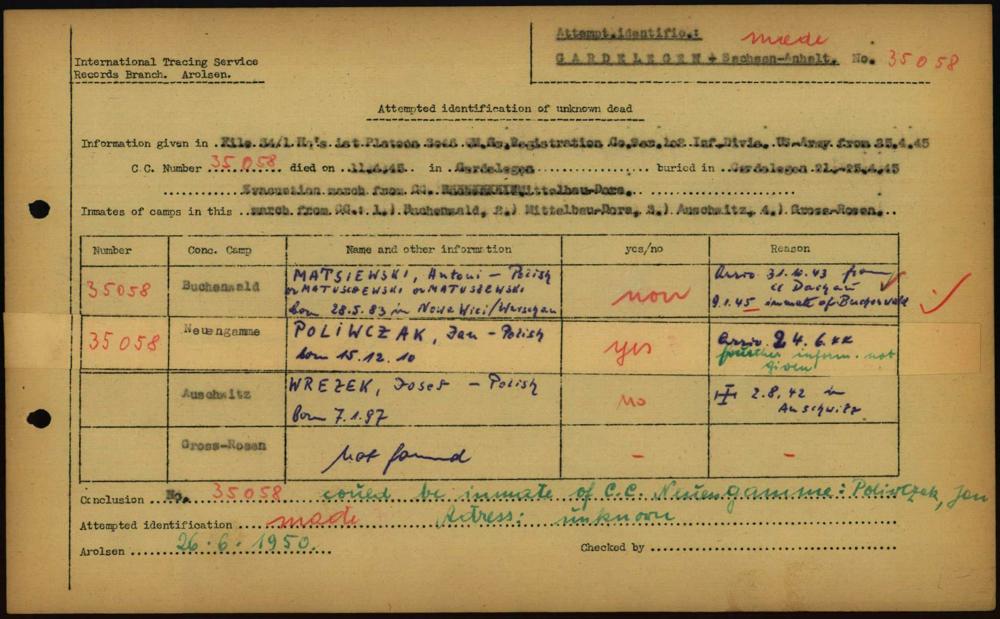 Attempt.identific.: made
International Tracing Service
Records Branch. Arolsen.
GARDELEGEN + Sachsen-Anhalt. No. 35058
Attempted identification of unknown dead
Information given in File 34/1 Hq's 1st Platoon 3048 Registration Co. 102 Inf. Divis. US-Army from 25.4.45
C.C. Number 35058 died on 11.4.45 in Gardelegen buried in Gardelegen 21.-25.4.45
Evacuation march from CC. Mittelbau-Dora.
Inmates of camps in this march from CC: 1.) Buchenwald, 2.) Mittelbau-Dora, 3.) Auschwitz, 4.) Gross-Rosen.
Number Conc. Camp Name and other information yes/no Reason
35058 Buchenwald MATSIEWSKI, Antoni - Polish
or MATUSZEWSKI or MATUSZEWSKI
born 28.5.83 in Nowa Wici/Warschau
non
Arriv. 31.10.43 from
CC Dachau
9.1.45 inmate of Buchenwald
35058 Neuengamme POLIWCZAK, Jan - Polish
born 15.12.10
yes
Arriv. 24.6.44
fourther inform. not
given
Auschwitz WREZEK, Josef - Polish
born 7.1.97
no
2.8.42 in
Auschwitz
Gross-Rosen not found - -
Conclusion No. 35058 could be inmate of C.C. Neuengamme: Poliwczak, Jan
Attempted identification made Adress: unknown
Arolsen 26.6.1950. Checked by